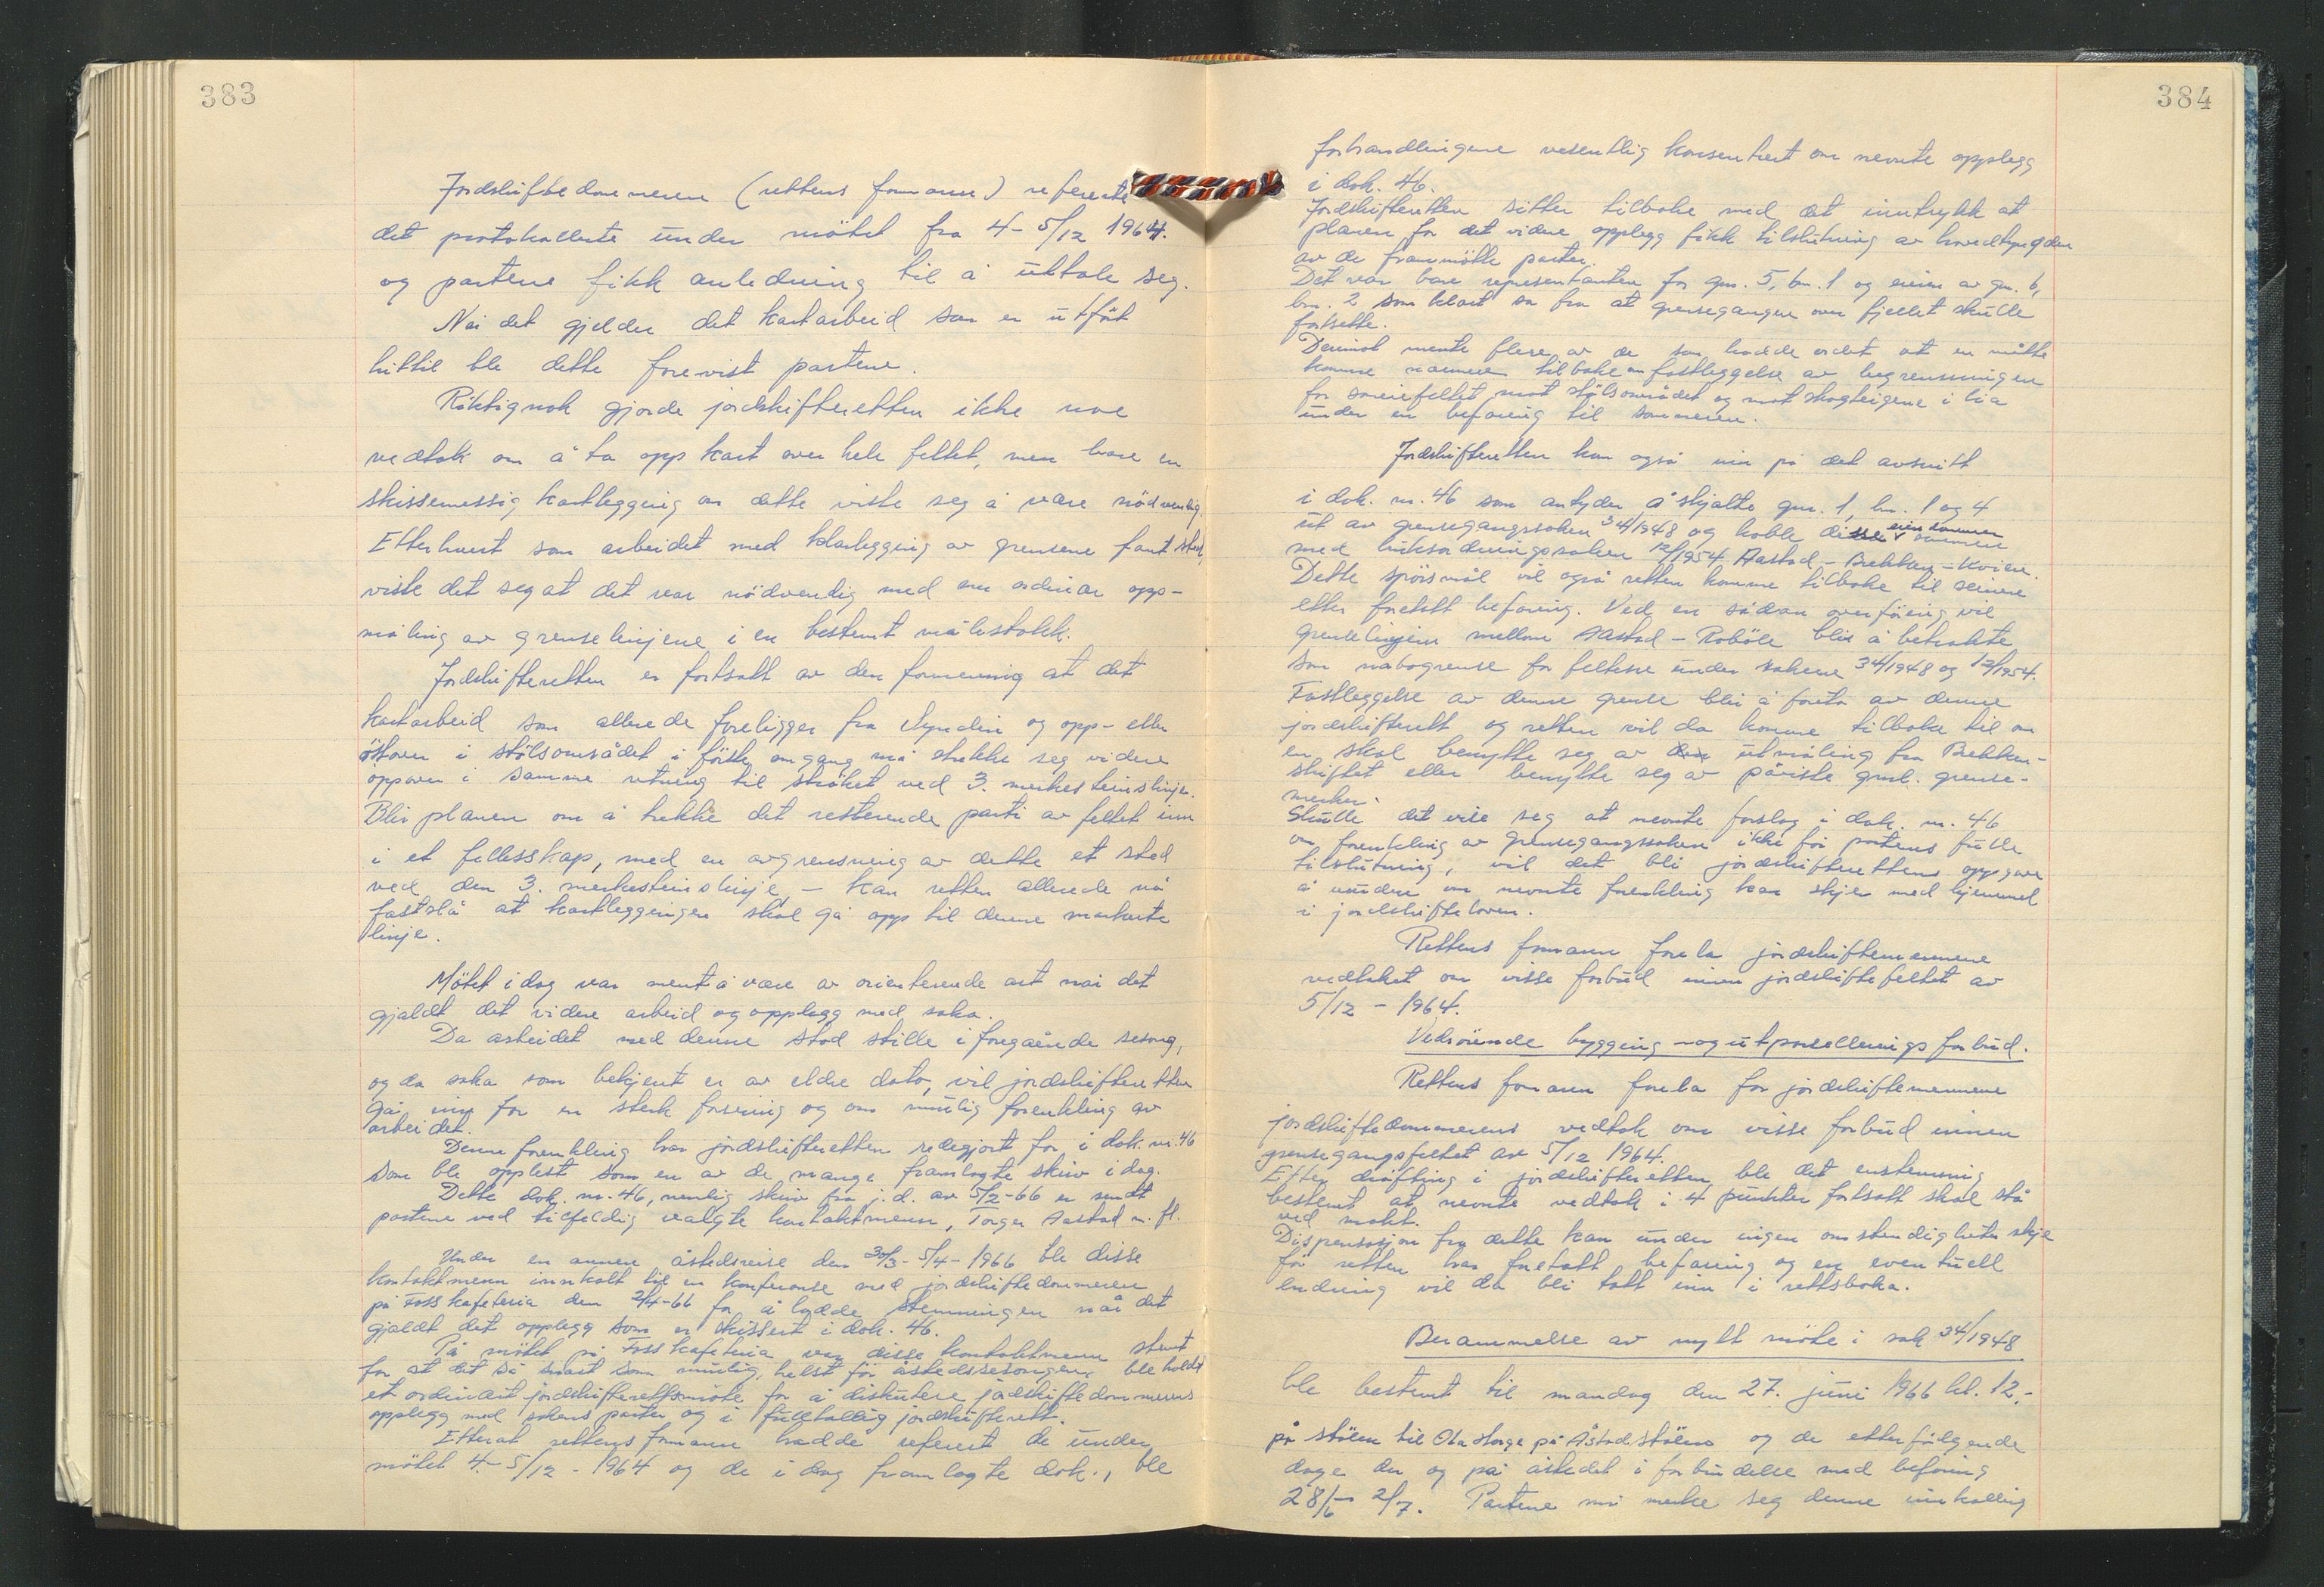 383
Jordskiftedommeren (rettens formann) refererte
det protokollerte under mötet fra 4-5/12 1964.
og partene fikk anledning til å uttale seg.
Når det gjelder det kartarbeid som er utfört
hittil ble dette forevist partene.
Riktignok gjorde jordskifteretten ikke noe
vedtak om å ta opp kart over hele feltet, men bare en
skissemessig kartlegging om dette viste seg å være nödvendig.
Etterhvert som arbeidet med klarlegging av grensene fant sted,
viste det seg at det var nödvendig med en ordinær opp-
måling av grenselinjene i en bestemt målestokk.
Jordskifteretten er fortsatt av den formening at det
kartarbeid som allerede foreligger fra Syndin og opp- eller
östover i stölsområdet i förste omgang må strekke seg videre
oppover i samme retning til ströket ved 3. merkesteinslinje.
Blir planen om å trekke det resterende parti av feltet inn
i et fellesskap, med en avgrensning av dette et sted
ved den 3. merkesteinslinje, - kan retten allerede nå
fastslå at kartleggingen skal gå opp til denne markerte
linje.
Mötet idag var ment å være av orienterende art når det
gjaldt det videre arbeid og opplegg med saka.
Da arbeidet med denne stod stille i foregående sesong,
og da saka som bekjent er av eldre dato, vil jordskifteretten
gå inn for en sterk forsering og om mulig forenkling av
arbeidet.
Denne forenkling har jordskifteretten redegjort for i dok. nr. 46
som ble opplest som en av de mange framlagte skriv i dag.
Dette dok. nr. 46, nemlig skriv fra j.d. av 5/2-66 er sendt
partene ved tilfeldig valgte kontaktmenn, Torger Aastad m. fl.
Under en annen åstedsreise den 30/3- 5/4- 1966 ble disse
kontaktmenn innkalt til en konferanse med jordskiftedommeren
på Foss kafeteria den 2/4-66 for å lodde stemningen når det
gjaldt det opplegg som er skissert i dok. 46.
På mötet på Foss kafeteria var disse kontaktmenn stemt
for at det så snart som mulig, helst för åstedssesongen, ble holdt
et ordinært jordskifterettsmöte for å diskutere jordskiftedommerens
opplegg med sakens parter og i fulltallig jordskifterett.
Etterat rettens formann hadde referert de under
mötet 4.-5/12 - 1964 og de i dag framlagte dok., ble
384
forhandlingene vesentlig konsentrert om nevnte opplegg
i dok. 46.
Jordskifteretten sitter tilbake med det inntrykk at
planen for det videre opplegg fikk tilslutning av hovedtyngden
av de frammötte parter.
Det var bare representanten for gnr. 5, bn. 1 og eieren av gn. 6,
bn. 2 som klart sa fra at grensegangen over fjellet skulle
fortsette.
Derimot mente flere av de som hadde ordet at en måtte
komme nærmere tilbake om fastleggelse av begrensningen
for sameiefeltet mot stölsområdet og mot skogteigene i lia
under en befaring til sommeren.
Jordskifteretten kom også inn på det avsnitt
i dok. nr. 46 som antyder å skjalte gnr. 1, bn. 1 og 4
ut av grensegangssaken 34/1948 og koble disse eiendommer sammen
med bruksordningssaken 12/1954 Aastad - Brekken - Kvien.
Dette spörsmål vil også retten komme tilbake til seinere
etter foretatt befaring. Ved en sådan overföring vil
grenselinjen mellom Aastad - Roböle bli å betrakte
som nabogrense for feltene under sakene 34/1948 og 12/1954.
Fastleggelse av denne grense blir å foreta av denne
jordskifterett og retten vil da komme tilbake til om
en skal benytte seg av den utmåling fra Brekken-
skiftet eller benytte seg av påviste gml. grense-
merker.
Skulle det vise seg at nevnte forslag i dok. nr. 46
om forenkling av grensegangssaken ikke får partenes fulle
tilslutning, vil det bli jordskifterettens oppgave
å vurdere om nevnte forenkling kan skje med hjemmel
i jordskifteloven.
Rettens formann forela jordskiftemennene
vedtaket om visse forbud innen jordskiftefeltet av
5/12 - 1964.
Vedrörende bygging - og utparselleringsforbud.
Rettens formann forela for jordskiftemennene
jordskiftedommerens vedtak om visse forbud innen
grensegangsfeltet av 5/12 1964.
Etter dröfting i jordskifteretten ble det enstemmig
bestemt at nevnte vedtak i 4 punkter fortsatt skal stå
ved makt.
Dispensasjon fra dette kan under ingen omstendigheter skje
för retten har foretatt befaring og en eventuell
endring vil da bli tatt inn i rettsboka.
Berammelse av nytt möte i sak 34/1948
ble bestemt til mandag den 27. juni 1966 kl. 12.-
på stölen til Ola Hauge på Åstadstölen og de etterfölgende
dage der og på åstedet i forbindelse med befaring
28/6 - 2/7. Partene må merke seg denne innkalling